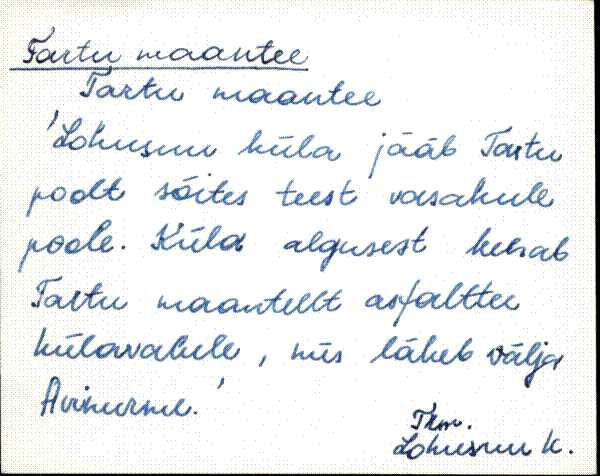 Tartu maantee
Tartu maantee
'Lohusuu küla jääb Tartu
poolt sõites teest vasakule
poole. Küla algusest keerab
Tartu maanteelt asfalttee
külavahele, mis läheb välja
Avinurme.'
Trm.
Lohusuu k.